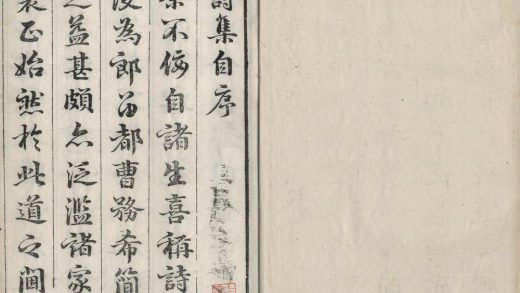 詩集自序
不佞自諸生喜稱詩
為郎留都曹務希簡
益甚頗亦泛濫諸家
正始然於此道之閫